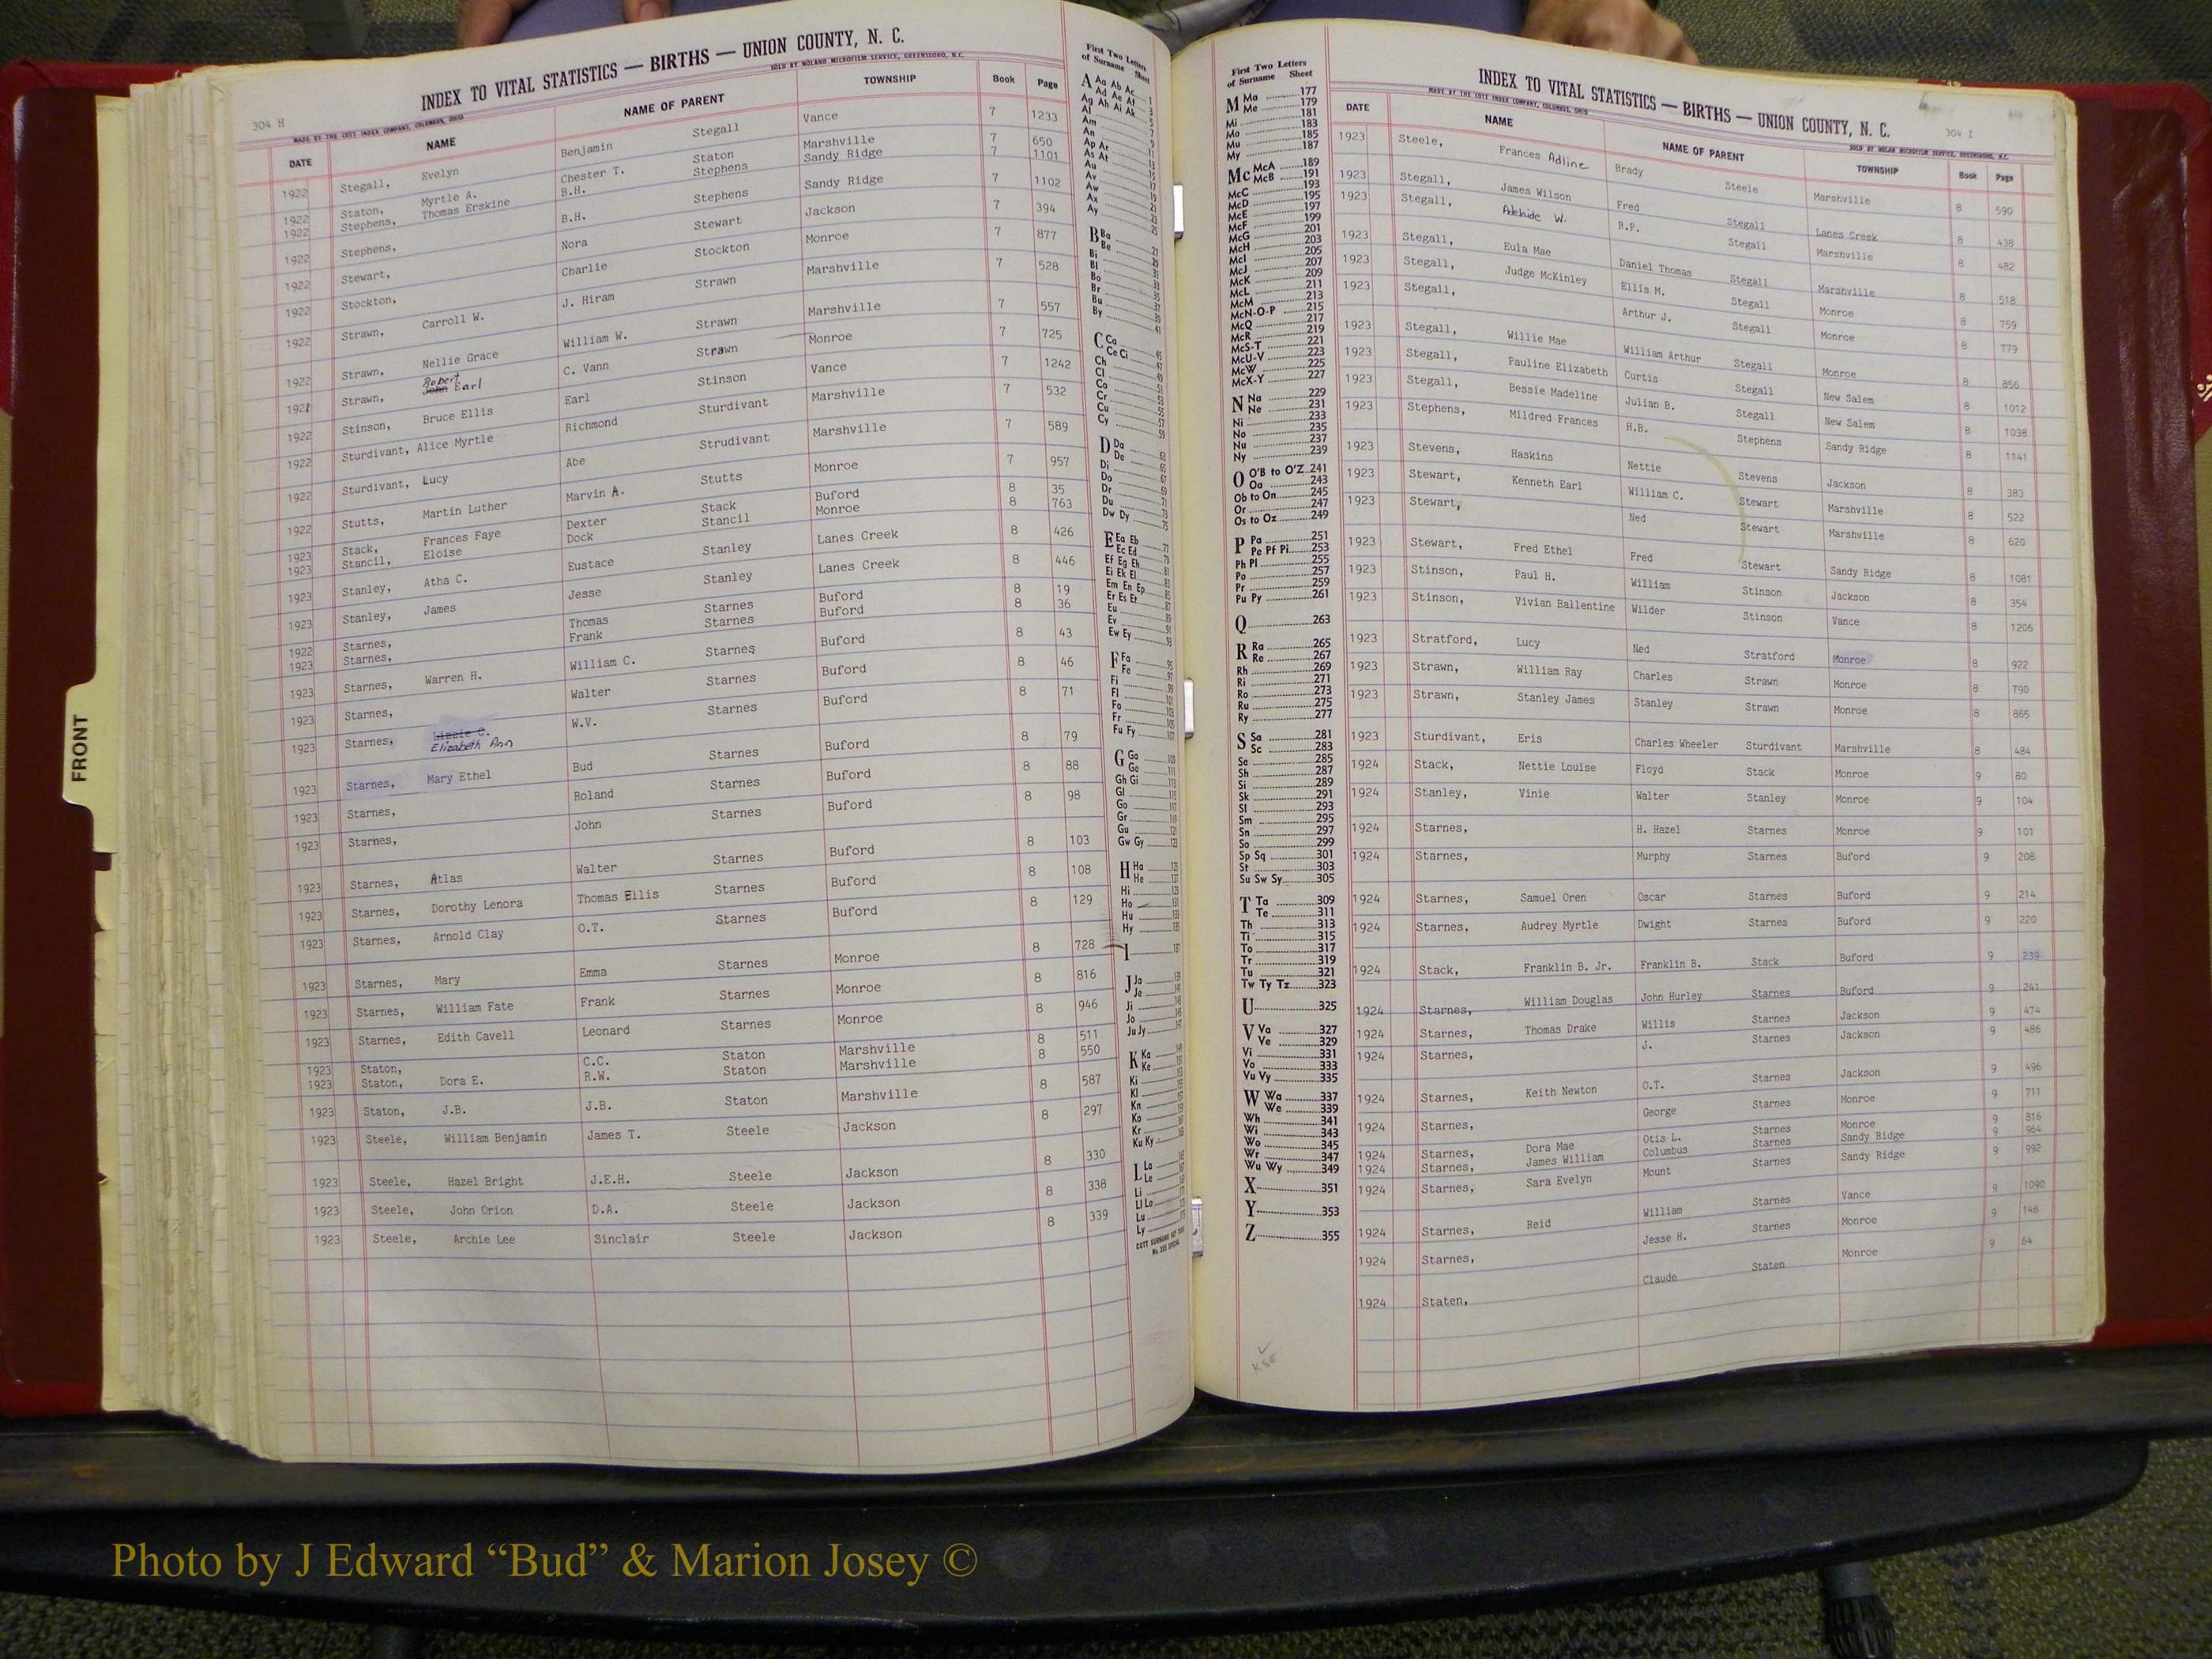 304 H
INDEX TO VITAL STATISTICS — BIRTHS — UNION COUNTY, N. C.
MADE BY THE COTT INDEX COMPANY, COLUMBUS, OHIO SOLD BY NOLAND MICROFILM SERVICE, GREENSBORO, N.C.
DATE NAME NAME OF PARENT TOWNSHIP Book Page
1922 Stegall, Evelyn Benjamin Stegall Vance 7 1233
1922 Staton, Myrtle A. Chester T. Staton Marshville 7 650
1922 Stephens, Thomas Erskine B.H. Stephens Sandy Ridge 7 1101
1922 Stephens, B.H. Stephens Sandy Ridge 7 1102
1922 Stewart, Nora Stewart Jackson 7 394
1922 Stockton, Charlie Stockton Monroe 7 877
1922 Strawn, Carroll W. J. Hiram Strawn Marshville 7 528
1922 Strawn, Nellie Grace William W. Strawn Marshville 7 557
1921 Strawn, Robert John Earl C. Vann Strawn Monroe 7 725
1922 Stinson, Bruce Ellis Earl Stinson Vance 7 1242
1922 Sturdivant, Alice Myrtle Richmond Sturdivant Marshville 7 532
1922 Sturdivant, Lucy Abe Strudivant Marshville 7 589
1922 Stutts, Martin Luther Marvin A. Stutts Monroe 7 957
1923 Stack, Frances Faye Dexter Stack Buford 8 35
1923 Stancil, Eloise Dock Stancil Monroe 8 763
1923 Stanley, Atha C. Eustace Stanley Lanes Creek 8 426
1923 Stanley, James Jesse Stanley Lanes Creek 8 446
1922 Starnes, Thomas Starnes Buford 8 19
1923 Starnes, Frank Starnes Buford 8 36
1923 Starnes, Warren H. William C. Starnes Buford 8 43
1923 Starnes, Walter Starnes Buford 8 46
1923 Starnes, Lizzie C. Elizabeth Ann W.V. Starnes Buford 8 71
1923 Starnes, Mary Ethel Bud Starnes Buford 8 79
1923 Starnes, Roland Starnes Buford 8 88
1923 Starnes, John Starnes Buford 8 98
1923 Starnes, Atlas Walter Starnes Buford 8 103
1923 Starnes, Dorothy Lenora Thomas Ellis Starnes Buford 8 108
1923 Starnes, Arnold Clay O.T. Starnes Buford 8 129
1923 Starnes, Mary Emma Starnes Monroe 8 728
1923 Starnes, William Fate Frank Starnes Monroe 8 816
1923 Starnes, Edith Cavell Leonard Starnes Monroe 8 946
1923 Staton, C.C. Staton Marshville 8 511
1923 Staton, Dora E. R.W. Staton Marshville 8 550
1923 Staton, J.B. J.B. Staton Marshville 8 587
1923 Steele, William Benjamin James T. Steele Jackson 8 297
1923 Steele, Hazel Bright J.E.H. Steele Jackson 8 330
1923 Steele, John Orion D.A. Steele Jackson 8 338
1923 Steele, Archie Lee Sinclair Steele Jackson 8 339
FRONT
First Two Letters
of Surname Sheet
A Aa Ab Ac 1
Ad Ae Af 3
Ag Ah Ai Ak 5
Al
Am 7
An 9
Ap Ar 11
As At 13
Au 15
Av 17
Aw 19
Ax 23
Ay 25
B Ba 27
Be 29
Bi 31
Bl
Bo
Br
Bu 39
By 41
C Ca 45
Ce Ci 47
Ch
Cl
Co
Cr
Cu 57
Cy 59
D Da 63
De 65
Di 67
Do 69
Dr 71
Du 73
Dw Dy 75
E Ea Eb 77
Ec Ed
Ef Eg Eh
Ei Ek El
Em En Ep
Er Es Et
Eu
Ev
Ew Ey 93
F Fa 95
Fe 97
Fi 99
Fl 101
Fo 103
Fr 105
Fu Fy 107
G Ga 109
Ge 111
Gh Gi 113
Gl 115
Go 117
Gr 119
Gu 121
Gw Gy 123
H Ha 125
He 127
Hi 129
Ho 131
Hu 133
Hy 135
I 137
J Ja 139
Je 141
Ji 143
Jo 145
Ju Jy 147
K Ka
Ke
Ki
Kl
Kn
Ko
Kr
Ku Ky
L La
Le
Li
Ll Lo
Lu
Ly
COTT SURNAME KEY
First Two Letters
of Surname Sheet
M Ma 177
Me 179
Mi 181
Mo 183
Mu 185
My 187
Mc McA 189
McB 191
McC 193
McD 195
McE 197
McF 199
McG 201
McH 203
McI 205
McJ 207
McK 209
McL 211
McM 213
McN-O-P 215
McQ 217
McR 219
McS-T 221
McU-V 223
McW 225
McX-Y 227
N Na 229
Ne 231
Ni 233
No 235
Nu 237
Ny 239
O O'B to O'Z 241
Oa 243
Ob to On 245
Or 247
Os to Oz 249
P Pa 251
Pe Pf Pi 253
Ph Pl 255
Po 257
Pr 259
Pu Py 261
Q 263
R Ra 265
Re 267
Rh 269
Ri 271
Ro 273
Ru 275
Ry 277
S Sa 281
Sc 283
Se 285
Sh 287
Si 289
Sk 291
Sl 293
Sm 295
Sn 297
So 299
Sp Sq 301
St 303
Su Sw Sy 305
T Ta 309
Te 311
Th 313
Ti 315
To 317
Tr 319
Tu 321
Tw Ty Tz 323
U 325
V Va 327
Ve 329
Vi 331
Vo 333
Vu Vy 335
W Wa 337
We 339
Wh 341
Wi 343
Wo 345
Wr 347
Wu Wy 349
X 351
Y 353
Z 355
KSE
INDEX TO VITAL STATISTICS — BIRTHS — UNION COUNTY, N. C.
304 I
MADE BY THE COTT INDEX COMPANY, COLUMBUS, OHIO SOLD BY NOLAN MICROFILM SERVICE, GREENSBORO, N.C.
DATE NAME NAME OF PARENT TOWNSHIP Book Page
1923 Steele, Frances Adline Brady Steele Marshville 8 590
1923 Stegall, James Wilson Fred Stegall Lanes Creek 8 438
1923 Stegall, Adelaide W. R.P. Stegall Marshville 8 482
1923 Stegall, Eula Mae Daniel Thomas Stegall Marshville 8 518
1923 Stegall, Judge McKinley Ellis M. Stegall Monroe 8 759
1923 Stegall, Arthur J. Stegall Monroe 8 779
1923 Stegall, Willie Mae William Arthur Stegall Monroe 8 856
1923 Stegall, Pauline Elizabeth Curtis Stegall New Salem 8 1012
1923 Stegall, Bessie Madeline Julian B. Stegall New Salem 8 1038
1923 Stephens, Mildred Frances H.B. Stephens Sandy Ridge 8 1141
1923 Stevens, Haskins Nettie Stevens Jackson 8 383
1923 Stewart, Kenneth Earl William C. Stewart Marshville 8 522
1923 Stewart, Ned Stewart Marshville 8 620
1923 Stewart, Fred Ethel Fred Stewart Sandy Ridge 8 1081
1923 Stinson, Paul H. William Stinson Jackson 8 354
1923 Stinson, Vivian Ballentine Wilder Stinson Vance 8 1206
1923 Stratford, Lucy Ned Stratford Monroe 8 922
1923 Strawn, William Ray Charles Strawn Monroe 8 790
1923 Strawn, Stanley James Stanley Strawn Monroe 8 865
1923 Sturdivant, Eris Charles Wheeler Sturdivant Marshville 8 484
1924 Stack, Nettie Louise Floyd Stack Monroe 9 80
1924 Stanley, Vinie Walter Stanley Monroe 9 104
1924 Starnes, H. Hazel Starnes Monroe 9 101
1924 Starnes, Murphy Starnes Buford 9 208
1924 Starnes, Samuel Oren Oscar Starnes Buford 9 214
1924 Starnes, Audrey Myrtle Dwight Starnes Buford 9 220
1924 Stack, Franklin B. Jr. Franklin B. Stack Buford 9 239
1924 Starnes, William Douglas John Hurley Starnes Buford 9 241
1924 Starnes, Thomas Drake Willis Starnes Jackson 9 474
1924 Starnes, J. Starnes Jackson 9 486
1924 Starnes, Keith Newton O.T. Starnes Jackson 9 496
1924 Starnes, George Starnes Monroe 9 711
1924 Starnes, Dora Mae Otis L. Starnes Monroe 9 816
1924 Starnes, James William Columbus Starnes Sandy Ridge 9 964
1924 Starnes, Sara Evelyn Mount Starnes Sandy Ridge 9 992
1924 Starnes, Reid William Starnes Vance 9 1090
1924 Starnes, Jesse H. Starnes Monroe 9 146
1924 Staten, Claude Staten Monroe 9 64
Photo by J Edward “Bud” & Marion Josey ©